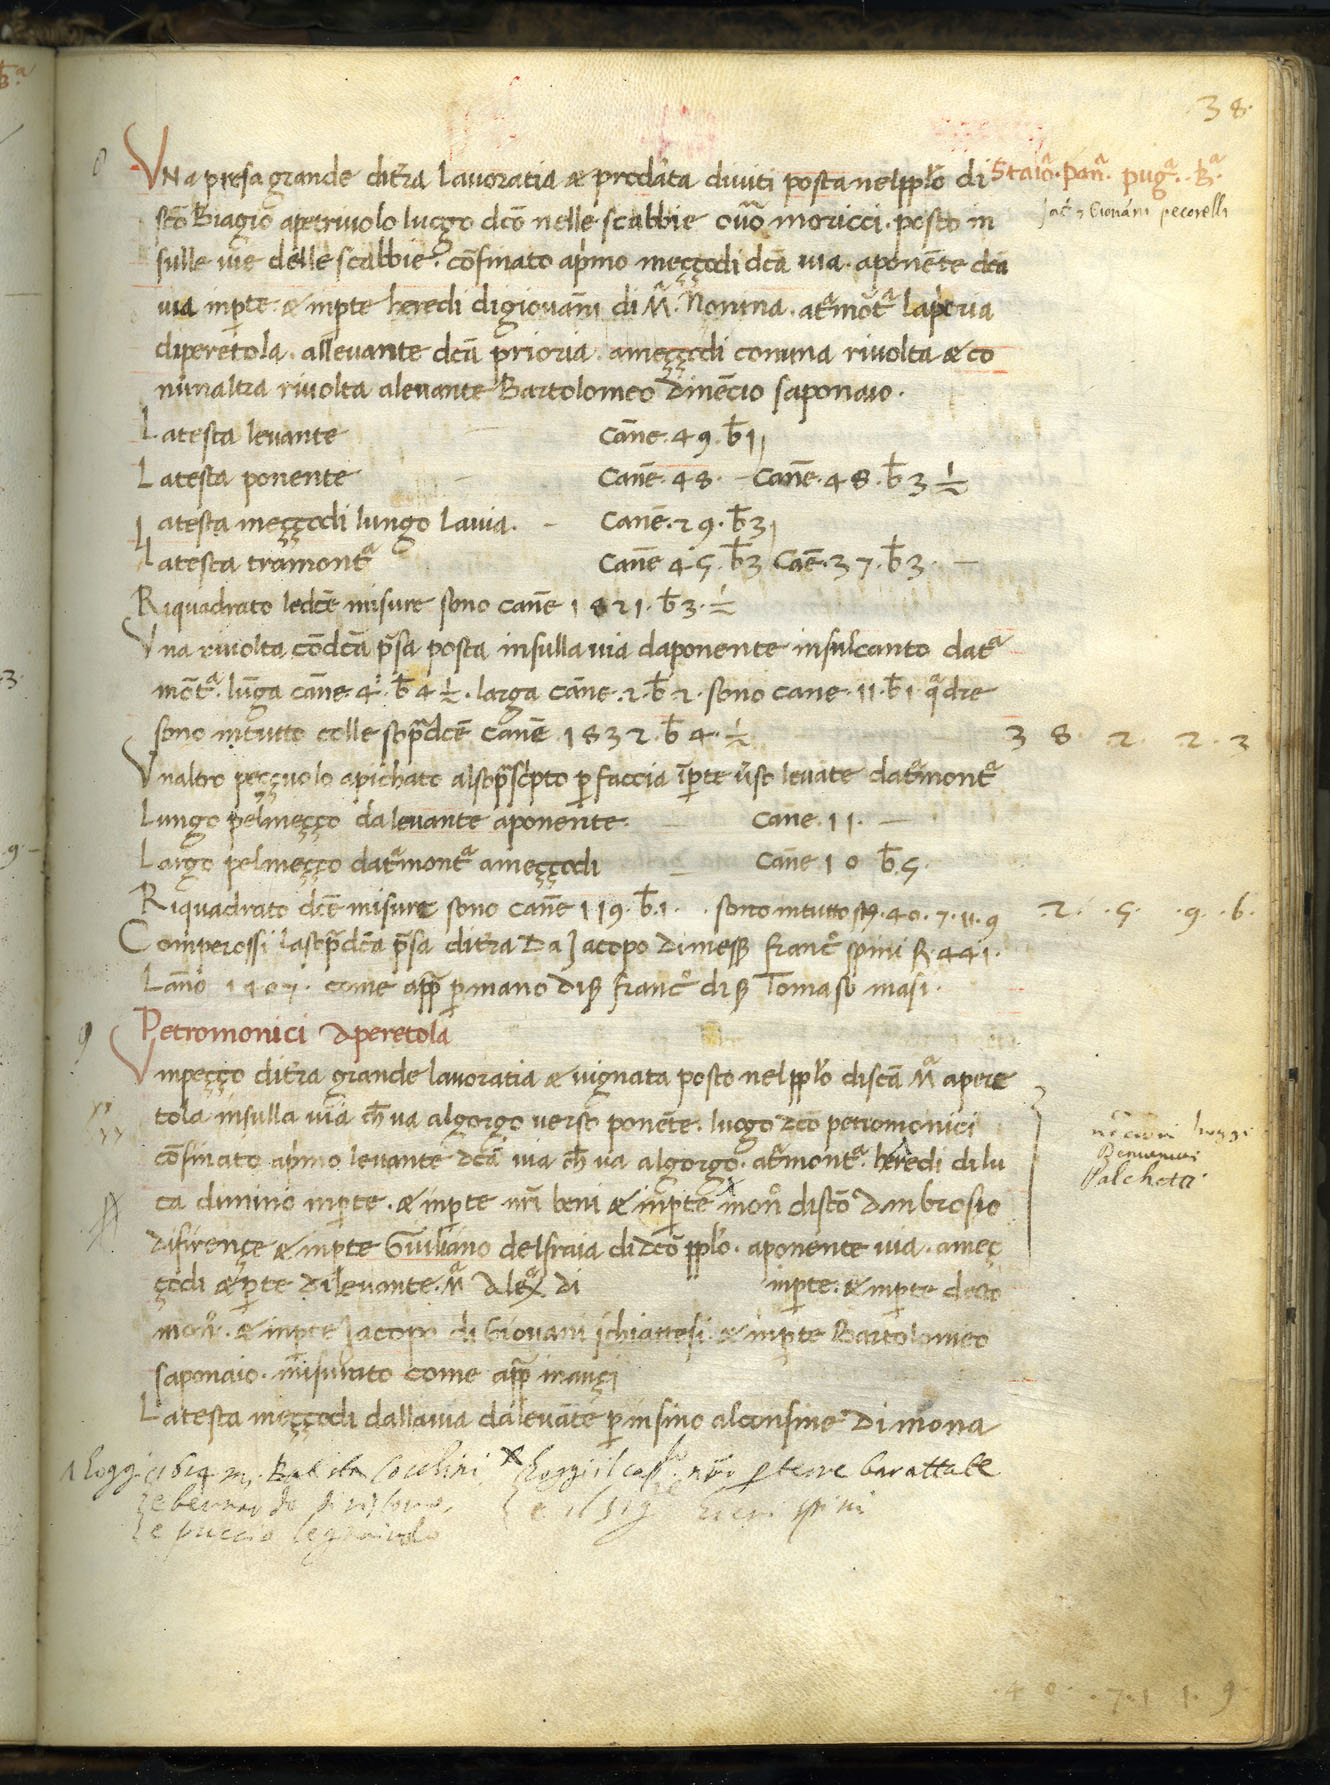 38
8
Una presa grande ditr̄a lavoratia & prodãta diviti posta nelpplo di Staiᵃ. panᵃ. pugᵃ. Bᵃ.
sc̄o Biagio apetriuolo luogo dc̄o nelle scabbie ov̄o moricci. posto in
Jac̄ & Giovāni pecorelli
sulle vie delle scabbie. cōfinato apͥmo meççodi dc̄a via. aponēte dc̄a
via inp̄te. & inp̄te heredi digiovāni di Mᵃ. Nonina. atᵃmōtᵃ laperia
diperetola. allevante dc̄a prioria. ameççodi conuna rivolta & co
nunaltra rivolta alevante Bartolomeo dinēcio saponaio.
Latesta levante Cāne. 49. b̄ 1
Latesta ponente Canē. 48. - Canē. 48. b̄ 3 ½
Latesta meççodi lungo lavia. - Canē. 29. b̄ 3
Latesta tramontᵃ Canē 45. b̄ 3 Caē. 37. b̄ 3. -
Riquadrato ledc̄e misure sono canē 1821. b̄ 3. ½
Una rivolta cōdc̄a p̄sa posta insulla via daponente insulcanto datᵃ
mōtᵃ. lūga cāne 4. b̄ 4 ½. larga cāne. 2. b̄ 2. sono cane. 11. b̄ 1 qᵃdre
sono intutto colle sop̄adc̄e canē 1832. b̄ 4. ½ 38. 2. 2. 2
Unaltro peççuolo apichato alsop̄ascͥpto p̱ faccia īp̱te v̄so levāte datᵃmontᵃ
Lungo pelmeççо da levante aponente. - Cāne. 11. -
Largo pelmeççо datᵃmontᵃ ameççodi - Cāne 10 b̄. 5.
Riquadrato dc̄e misure sono canē 119. b̄. 1. . sono intutto st̄. 40. 7. 11. 9 .2. .5. .9. .6.
Comperossi lasop̄adc̄a p̄sa ditr̄a Da Jacopo dimess̱ francͦ spini R. 441.
Lāno 1407. come app̄ p̱mano dis̱ francͦ dis̱ Tomaso masi.
9 Petromonici Aperetola
Unpeçço ditr̄a grande lavoratia & vignata posto nelpplo discā Mᵃ apere
tola insulla via ch̄ va algorgo verso ponēte. luogo dc̄o petromonici
cōfinato apͥmo levante dc̄a via ch̄ va algorgo. atᵃmontᵃ. heredi dilu
ca dinino inp̱te. & inp̱te nr̄i beni & inp̱te monͦ discō Ambrosio
difirençe & inp̱te Giuliano delfraia di dc̄o pplo. aponente via. ameç
çodi & p̱te dilevante. Mᵃ Alexᵃ di inp̱te. & inp̱te decto
monͦ. & inp̱te Jacopo di Giovāni schiattesi. & inp̱te Bartolomeo
saponaio. misurato come app̄ inançi
Latesta meççodi dallavia dalevāte p̱ insino alconfine di mona
Benvenuti
Palchetti
e bernardo
e puccio legnaiuolo
barattate
e il sig
. 4 0 . . 7 . 1 1 . 9